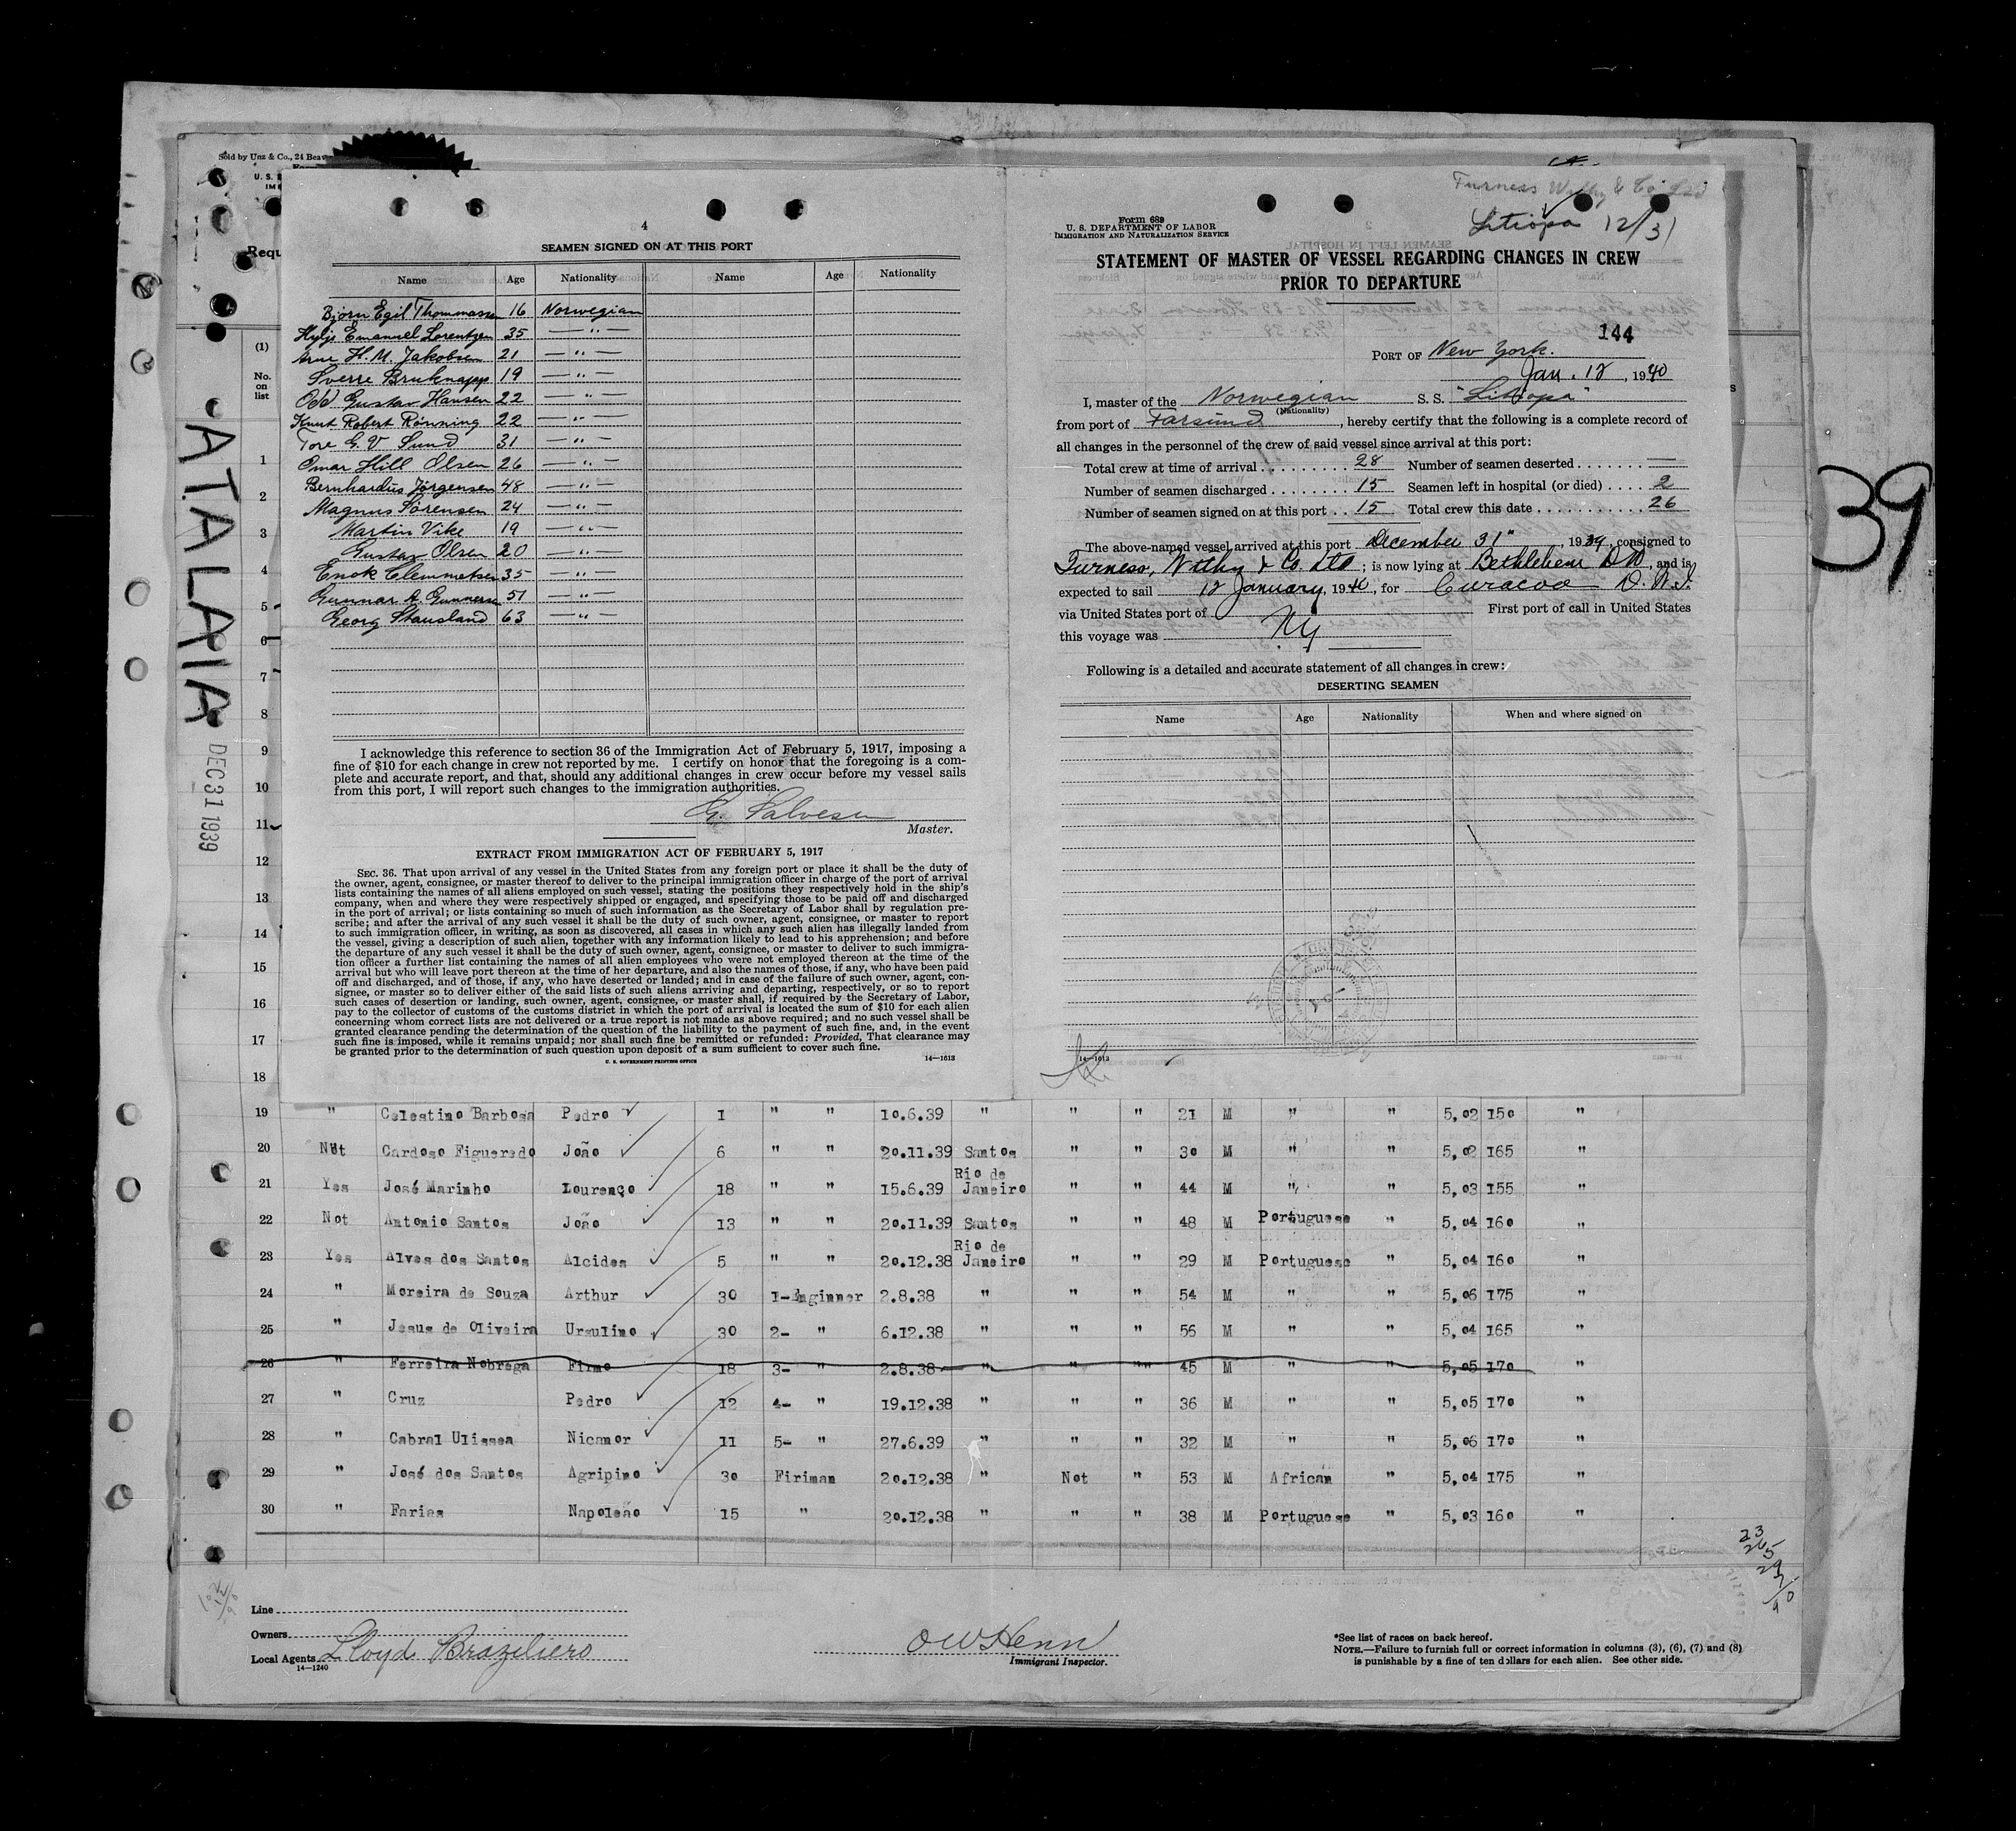 Sold by Unz & Co., 24 Beav
U. S.
IM
Requ
(1)
No.
on
list
ATALAIA
DEC 31 1939
4
SEAMEN SIGNED ON AT THIS PORT
Name Age Nationality Name Age Nationality
Bjorn Egil Thommassen 16 Norwegian
Emanuel Lorentzen 35 — " —
Arne H. M. Jakobsen 21 — " —
Sverre Bruknapp 19 — " —
Odd Gustav Hansen 22 — " —
Knut Robert Rönning 22 — " —
Tore G. V Sund 31 — " —
Omar Hill Olsen 26 — " —
Bernhardus Jörgensen 48 — " —
Magnus Sörensen 24 — " —
Martin Vike 19 — " —
Gustav Olsen 20 — " —
Enok Clemmetsen 35 — " —
Gunnar A. Gunnersen 51 — " —
Georg Stausland 63 — " —
I acknowledge this reference to section 36 of the Immigration Act of February 5, 1917, imposing a
fine of $10 for each change in crew not reported by me. I certify on honor that the foregoing is a com-
plete and accurate report, and that, should any additional changes in crew occur before my vessel sails
from this port, I will report such changes to the immigration authorities.
G. Salvesen
Master.
EXTRACT FROM IMMIGRATION ACT OF FEBRUARY 5, 1917
SEC. 36. That upon arrival of any vessel in the United States from any foreign port or place it shall be the duty of
the owner, agent, consignee, or master thereof to deliver to the principal immigration officer in charge of the port of arrival
lists containing the names of all aliens employed on such vessel, stating the positions they respectively hold in the ship's
company, when and where they were respectively shipped or engaged, and specifying those to be paid off and discharged
in the port of arrival; or lists containing so much of such information as the Secretary of Labor shall by regulation pre-
scribe; and after the arrival of any such vessel it shall be the duty of such owner, agent, consignee, or master to report
to such immigration officer, in writing, as soon as discovered, all cases in which any such alien has illegally landed from
the vessel, giving a description of such alien, together with any information likely to lead to his apprehension; and before
the departure of any such vessel it shall be the duty of such owner, agent, consignee, or master to deliver to such immigra-
tion officer a further list containing the names of all alien employees who were not employed thereon at the time of the
arrival but who will leave port thereon at the time of her departure, and also the names of those, if any, who have been paid
off and discharged, and of those, if any, who have deserted or landed; and in case of the failure of such owner, agent, con-
signee, or master so to deliver either of the said lists of such aliens arriving and departing, respectively, or so to report
such cases of desertion or landing, such owner, agent, consignee, or master shall, if required by the Secretary of Labor,
pay to the collector of customs of the customs district in which the port of arrival is located the sum of $10 for each alien
concerning whom correct lists are not delivered or a true report is not made as above required; and no such vessel shall be
granted clearance pending the determination of the question of the liability to the payment of such fine, and, in the event
such fine is imposed, while it remains unpaid; nor shall such fine be remitted or refunded: Provided, That clearance may
be granted prior to the determination of such question upon deposit of a sum sufficient to cover such fine.
U. S. GOVERNMENT PRINTING OFFICE 14—1613
Furness Withy & Co Ltd
Litiopa 12/31
Form 689
U. S. DEPARTMENT OF LABOR
IMMIGRATION AND NATURALIZATION SERVICE
STATEMENT OF MASTER OF VESSEL REGARDING CHANGES IN CREW
PRIOR TO DEPARTURE
144
PORT OF New York.
Jan. 12, 1940
I, master of the Norwegian S. S. "Litiopa"
(Nationality)
from port of Farsund, hereby certify that the following is a complete record of
all changes in the personnel of the crew of said vessel since arrival at this port:
Total crew at time of arrival 28 Number of seamen deserted —
Number of seamen discharged 15 Seamen left in hospital (or died) 2
Number of seamen signed on at this port 15 Total crew this date 26
The above-named vessel arrived at this port December 31", 1939, consigned to
Furness, Withy & Co. Ltd; is now lying at Bethlehem DD, and is
expected to sail 12 January, 1940, for Curacoa D. W. I.
via United States port of First port of call in United States
this voyage was NY
Following is a detailed and accurate statement of all changes in crew:
DESERTING SEAMEN
Name Age Nationality When and where signed on
14—1613
39
1
2
3
4
5
6
7
8
9
10
11
12
13
14
15
16
17
18
19 " Celestino Barbosa Pedro 1 " " 10.6.39 " " " 21 M " " 5,02 150 "
20 Not Cardoso Figueredo João 6 " " 20.11.39 Santos " " 30 M " " 5,02 165 "
21 Yes José Marinho Lourenço 18 " " 15.6.39 Rio de Janeiro " " 44 M " " 5,03 155 "
22 Not Antonio Santos João 13 " " 20.11.39 Santos " " 48 M Portuguese " 5,04 160 "
23 Yes Alves dos Santos Alcides 5 " " 20.12.38 Rio de Janeiro " " 29 M Portuguese " 5,04 160 "
24 " Moreira de Souza Arthur 30 1-Enginner 2.8.38 " " " 54 M " " 5,06 175 "
25 " Jesus de Oliveira Ursulino 30 2- " 6.12.38 " " " 56 M " " 5,04 165 "
26 " Ferreira Nobrega Firmo 18 3- " 2.8.38 " " " 45 M " " 5,05 170 "
27 " Cruz Pedro 12 4- " 19.12.38 " " " 36 M " " 5,05 170 "
28 " Cabral Ulissea Nicanor 11 5- " 27.6.39 " " " 32 M " " 5,06 170 "
29 " José dos Santos Agripino 30 Firiman 20.12.38 " Not " 53 M African " 5,04 175 "
30 " Farias Napoleão 15 " 20.12.38 " " " 38 M Portuguese " 5,03 160 "
Line
Owners
Local Agents Lloyd Braziliero
14—1240
OW Henn
Immigrant Inspector.
*See list of races on back hereof.
NOTE.—Failure to furnish full or correct information in columns (3), (6), (7) and (8)
is punishable by a fine of ten dollars for each alien. See other side.